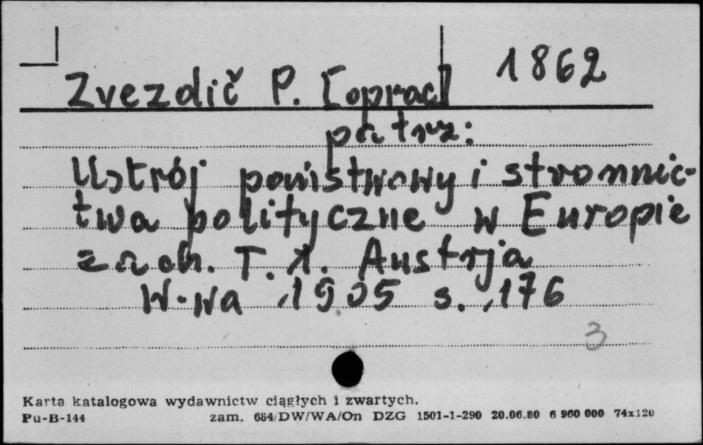 1862
Zvezdič P. [oprac]
patrz:
Ustrój państwowy i stronnic-
twa polityczne w Europie
zach. T. 1. Austrja
W-wa 1905 s. 176
3
Karta katalogowa wydawnictw ciągłych i zwartych.
Pu-B-144 zam. 684/DW/WA/On DZG 1501-1-290 20.06.80 6 960 000 74x120